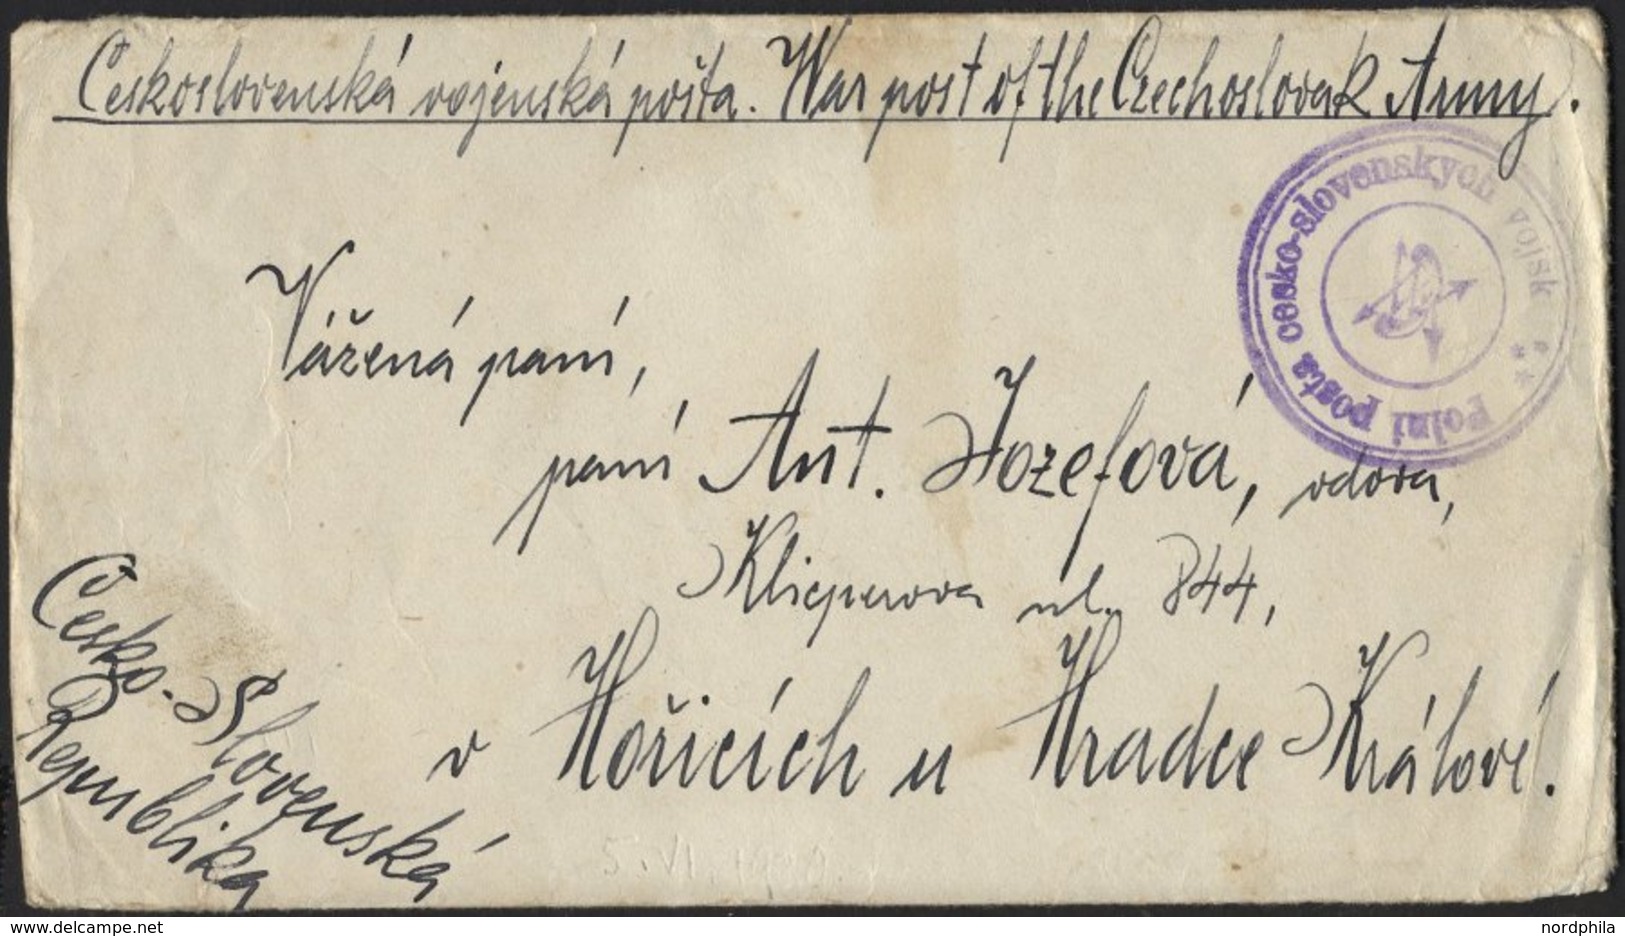 Československá vojenská pošta. War post of the Czechoslovak Army.
Polní pošta česko-slovenských vojsk **
Vážená paní,
paní Ant. Jozefová, vdova,
Klicperova ul. 844,
v Hořicích u Hradce Králové.
Česko-Slovenská
Republika
delcampe.net
nordphila